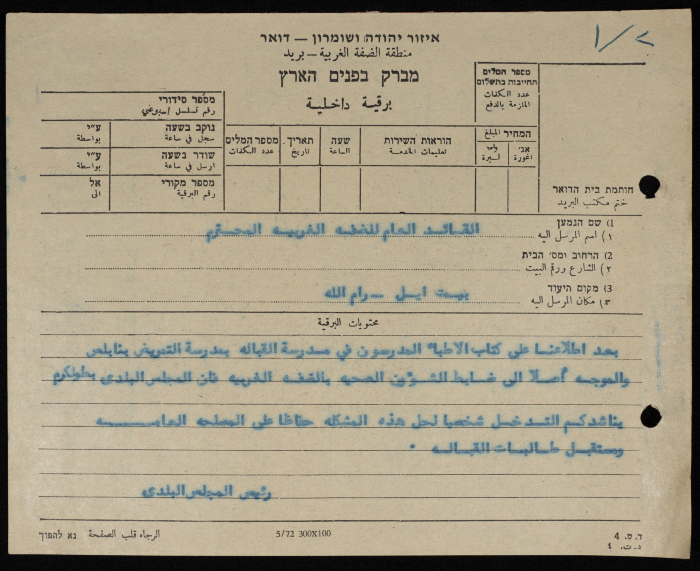 איזור יהודה ושומרון – דואר
منطقة الضفة الغربية – بريد
מברק בפנים הארץ
برقية داخلية
מספר המלים
החייבות בתשלום
عدد الكلمات
الملزمة بالدفع
המחיר المبلغ
אג' ל"י
اغورة ليرة
הוראות השירות
تعليمات الخدمة
שעה
الساعة
תאריך
تاريخ
מספר המלים
عدد الكلمات
מספר סידורי
رقم تسلسل اسبوعي
נוקב בשעה ע"י
سجل في ساعة بواسطة
שודר בשעה ע"י
ارسل في ساعة بواسطة
מספר מקורי אל
رقم البرقية الى
חותמת בית הדואר
ختم مكتب البريد
1) שם הנמען
١) اسم المرسل اليه
القائد العام للضفه الغربيه المحترم
2) הרחוב ומס' הבית
٢) الشارع ورقم البيت
3) מקום היעוד
٣) مكان المرسل اليه
بيت ايل – رام الله
محتويات البرقية
بعد اطلاعنا على كتاب الاطباء المدرسون في مدرسة القباله بمدرسة التمريض بنابلس
والموجه أصلا الى ضابط الشؤون الصحيه بالضفه الغربيه فان المجلس البلدي بطولكرم
يناشدكم التدخل شخصيا لحل هذه المشكله حفاظا على المصلحه العامه
ومستقبل طالبات القباله .
رئيس المجلس البلدي
ד.ס. 4
د.ت. ٤
5/72 300X100
الرجاء قلب الصفحة נא להפוך